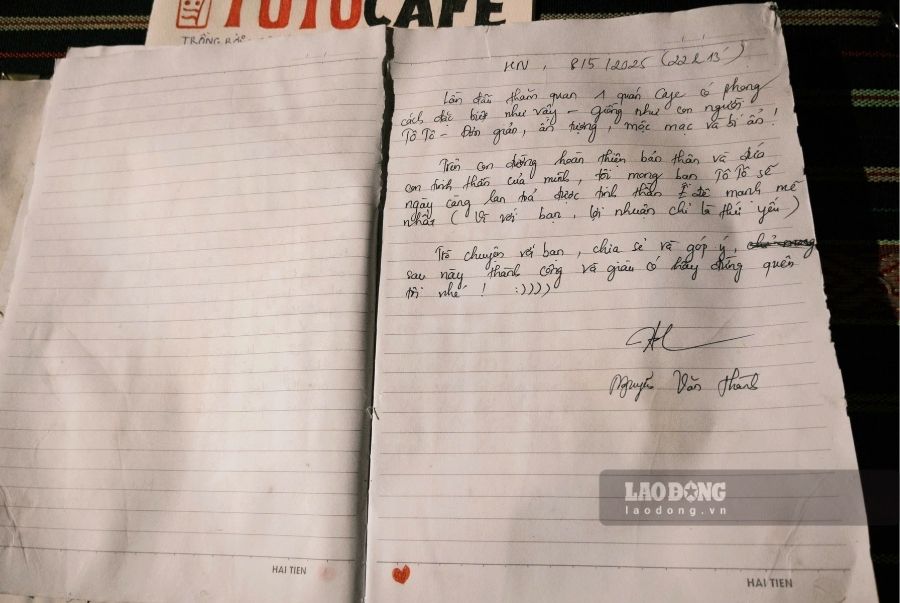 TOTOCAFE
HN, 8/5/2025 (22h13')
Lần đầu thăm quan 1 quán Cafe có phong
cách đặc biệt như vậy - giống như con người
Tô Tô - Đơn giản, ấn tượng, mộc mạc và bí ẩn!
Trên con đường hoàn thiện bản thân và đứa
con tinh thần của mình, tôi mong bạn Tô Tô sẽ
ngày càng lan toả được tinh thần ấy để mạnh mẽ
nhất (Vì với bạn, lợi nhuận chỉ là thứ yếu)
Trò chuyện với bạn, chia sẻ và góp ý,
sau này thành công và giàu có hãy đừng quên
tôi nhé! :))))
Nguyễn Văn Thành
LAO ĐỘNG
laodong.vn
HAI TIEN
HAI TIEN